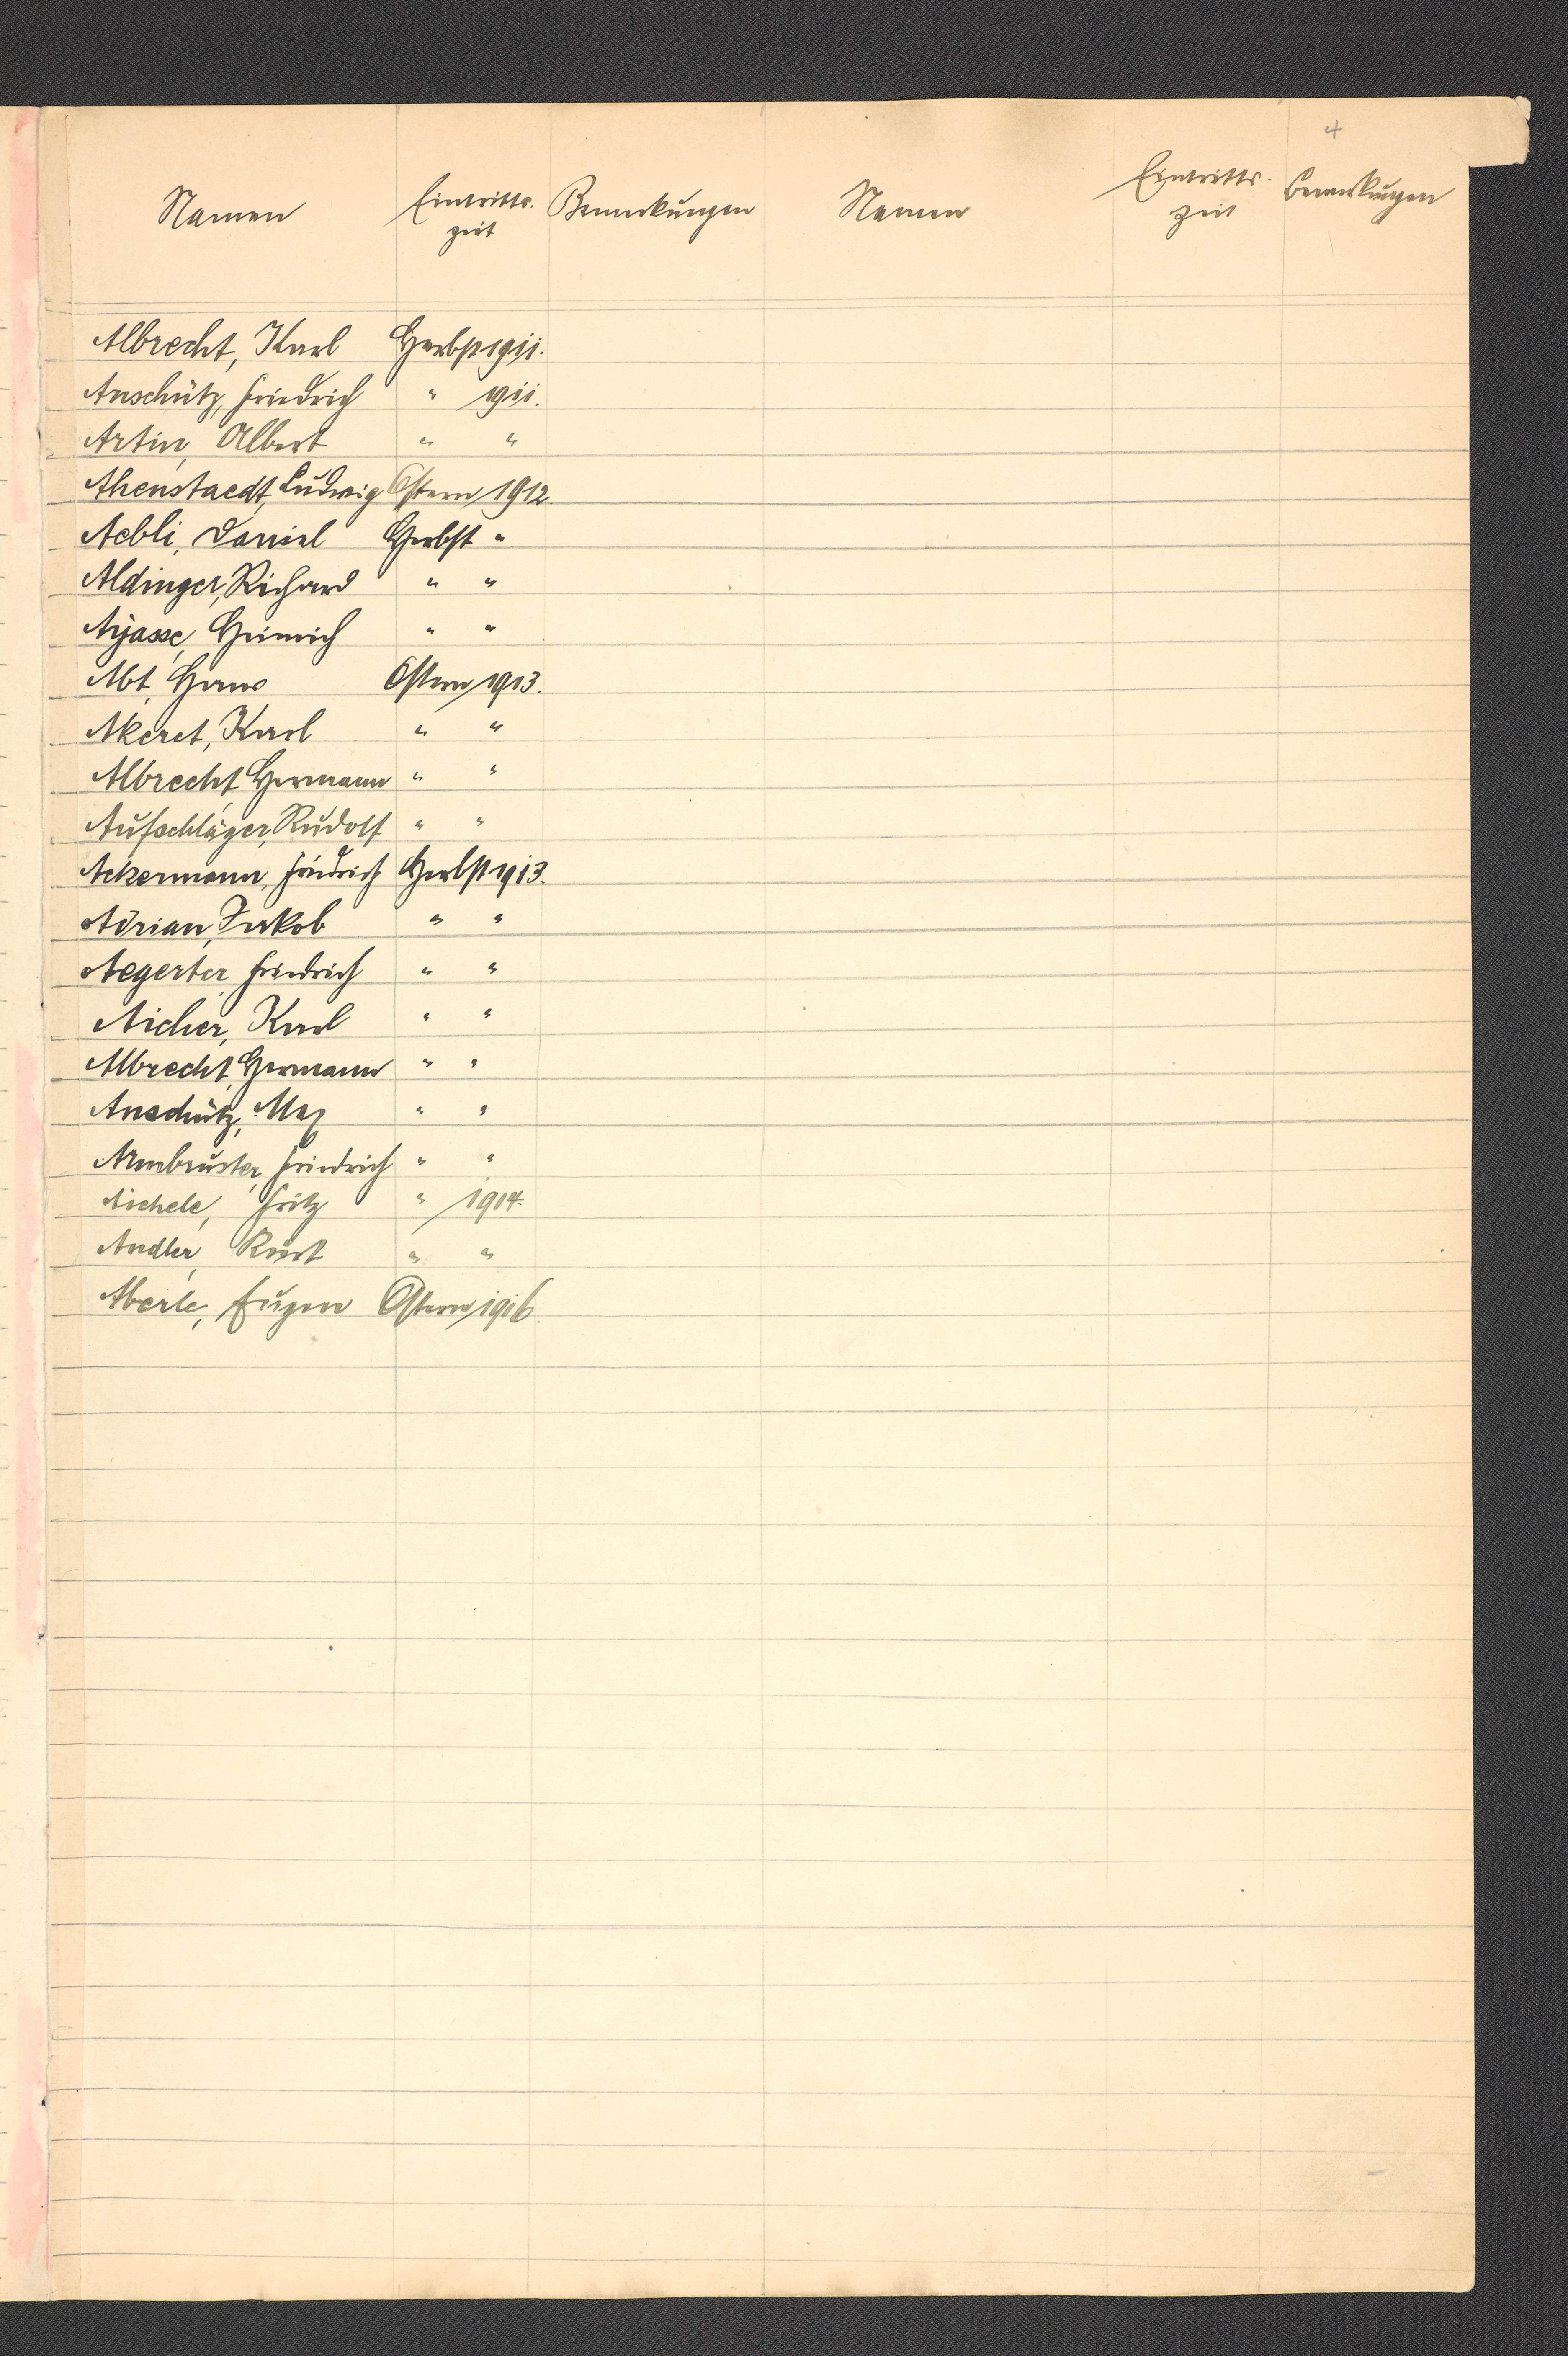 4
Namen Eintritts- Bemerkungen Namen Eintritts- Bemerkungen
zeit zeit
Albrecht, Karl Herbst 1911.
Anschütz, Friedrich " 1911.
Artin, Albert " "
Ahenstaedt, Ludwig Ostern 1912.
Aebli, Daniel Herbst "
Aldinger, Richard " "
Ajasse, Heinrich " "
Abt, Hans Ostern 1913.
Akeret, Karl " "
Albrecht, Hermann " "
Aufschläger, Rudolf " "
Ackermann, Friedrich Herbst 1913.
Adrian, Jakob " "
Aegerter, Friedrich " "
Aicher, Karl " "
Albrecht, Hermann " "
Anschütz, Max " "
Armbruster, Friedrich " "
Aichele, Fritz " 1914.
Andler, Kurt " "
Aberle, Eugen Ostern 1916.